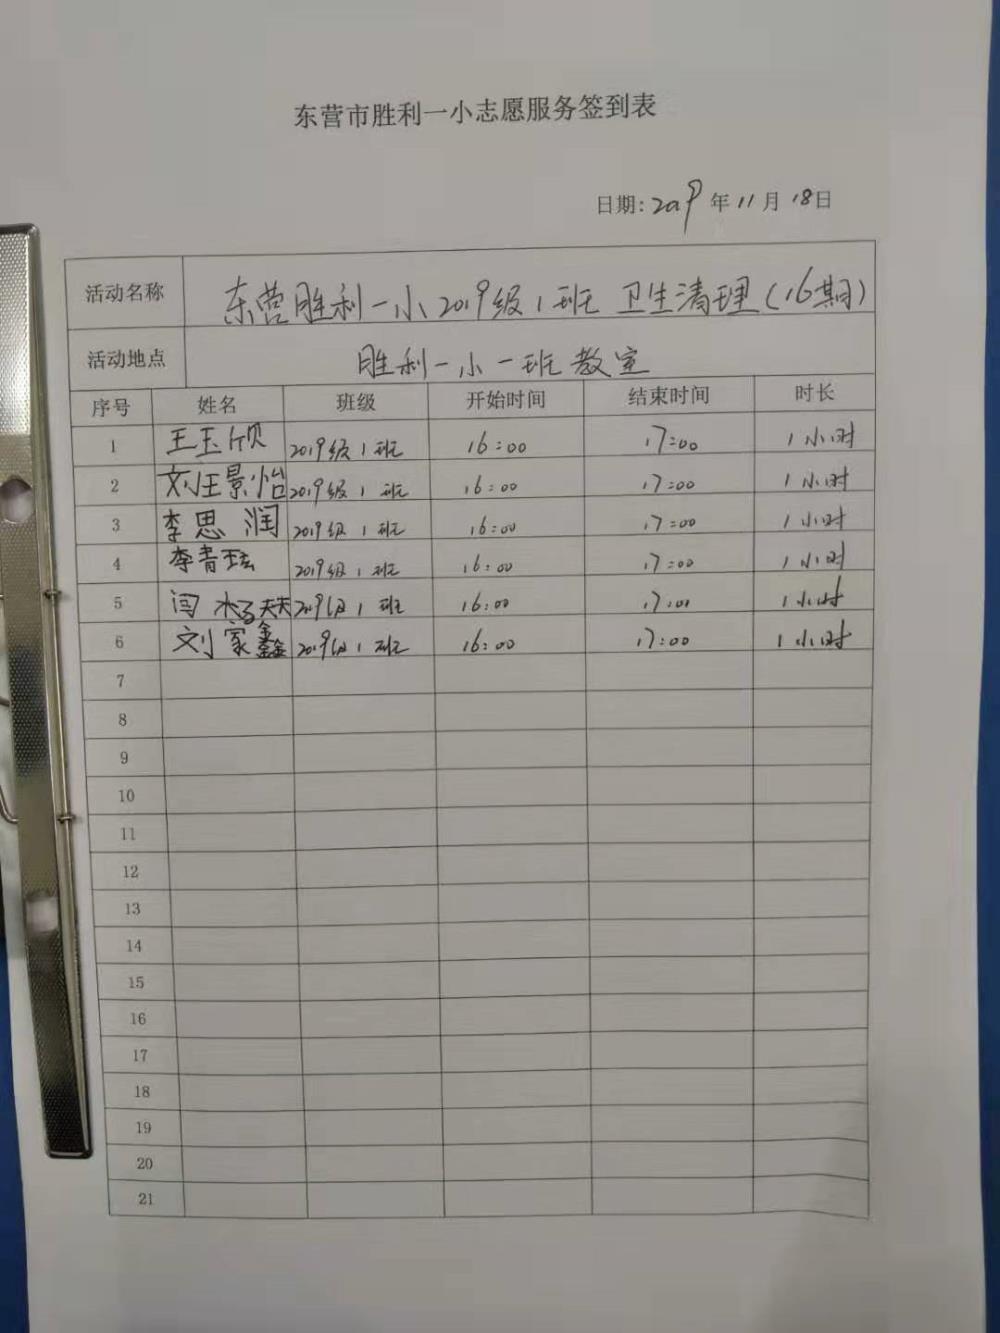 东营市胜利一小志愿服务签到表
日期: 2019 年 11 月 18 日
活动名称 东营胜利一小2019级1班 卫生清理(16期)
活动地点 胜利一小一班教室
序号 姓名 班级 开始时间 结束时间 时长
1 王玉欣 2019级1班 16:00 17:00 1小时
2 刘汪景怡 2019级1班 16:00 17:00 1小时
3 李思润 2019级1班 16:00 17:00 1小时
4 李青 2019级1班 16:00 17:00 1小时
5 闫 2019级1班 16:00 17:00 1小时
6 刘家鑫 2019级1班 16:00 17:00 1小时
7
8
9
10
11
12
13
14
15
16
17
18
19
20
21